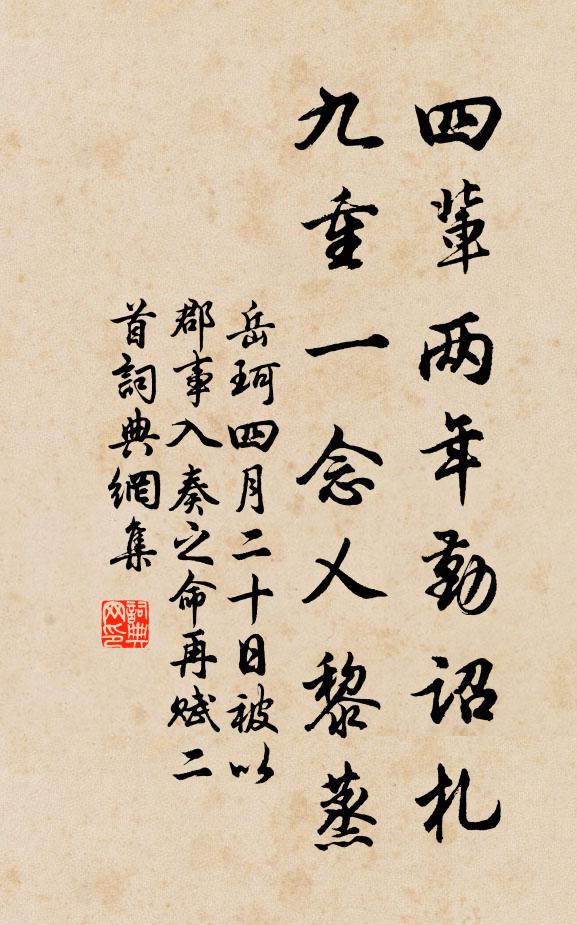 四輩两年勤詔札
九重一念乂黎蒸
岳珂四月二十日被以
郡事入奏之命再赋二
首詞典網集
詞典网印